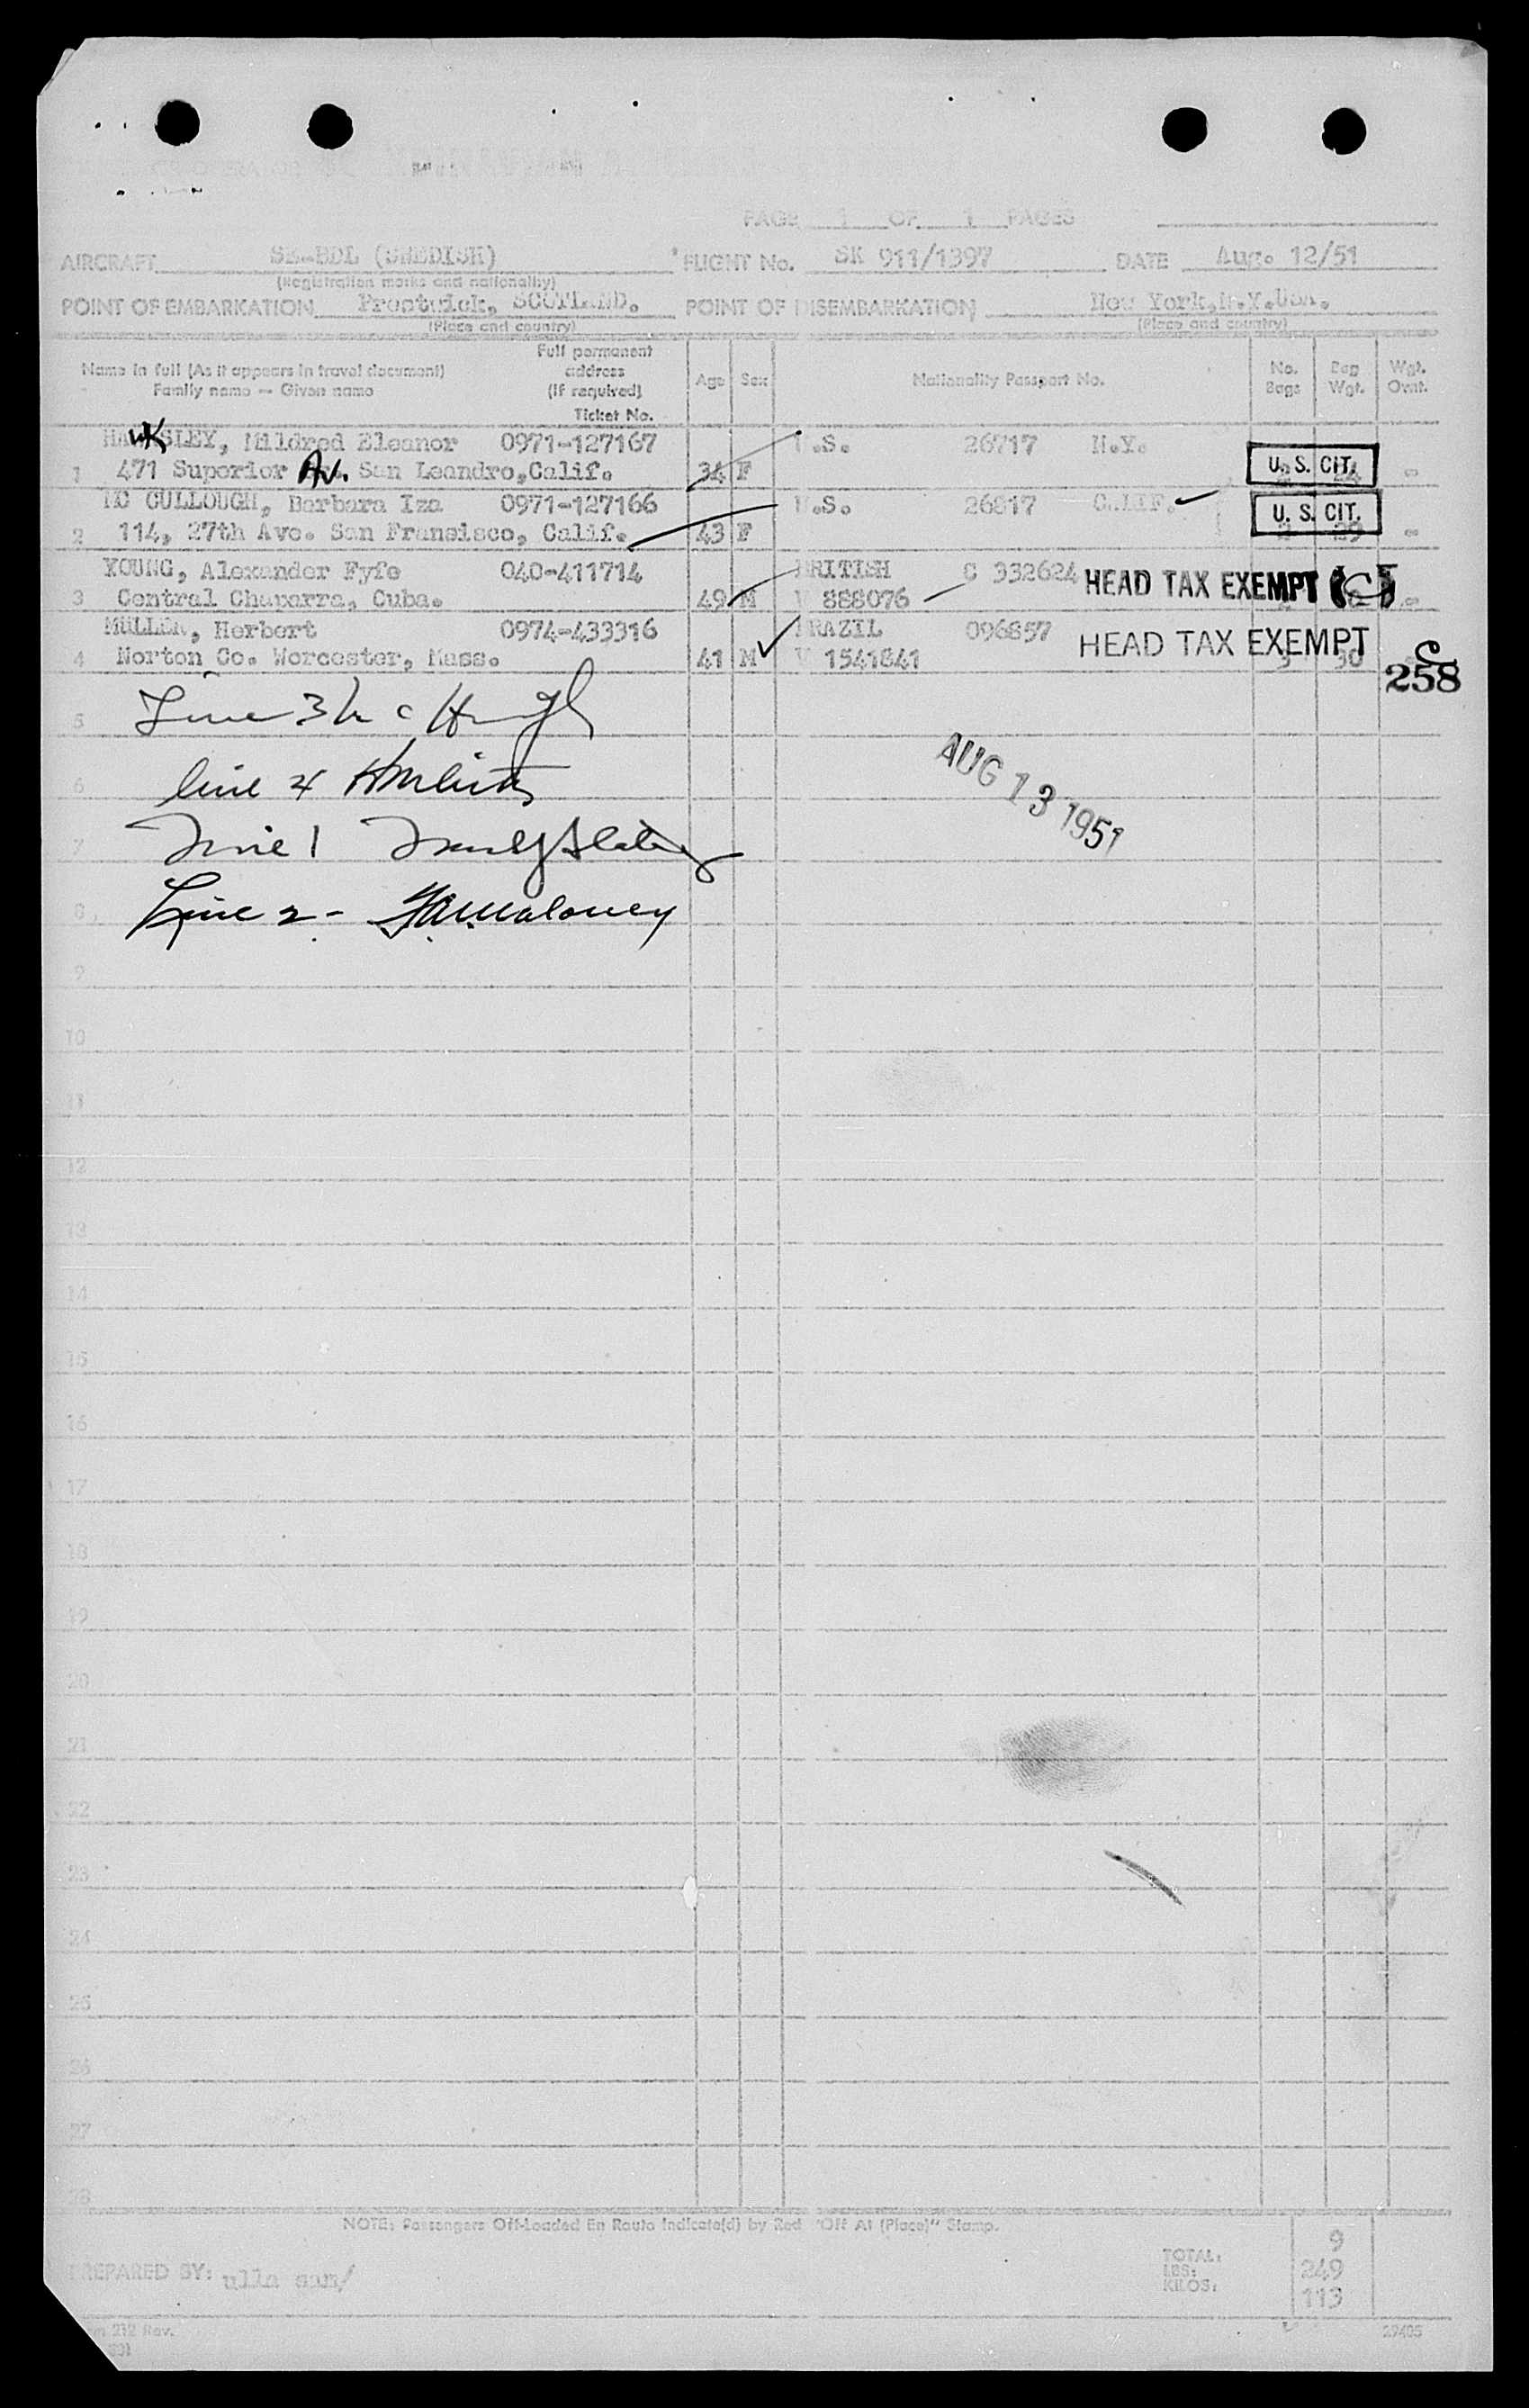 PAGE 1 OF 1 PAGES
AIRCRAFT SE-BDL (SWEDISH) FLIGHT No. SK 911/1397 DATE Aug. 12/51
(Registration marks and nationality)
POINT OF EMBARKATION Prestwick, SCOTLAND. POINT OF DISEMBARKATION New York, N.Y. Usa.
(Place and country) (Place and country)
Name in full (As it appears in travel document) Family name — Given name Full permanent address (if required) Ticket No. Age Sex Nationality Passport No. No. Bags Bag Wgt. Wgt. Ovnt.
HAWKSLEY, Mildred Eleanor 0971-127167 U.S. 26717 N.Y.
1 471 Superior Av. San Leandro, Calif. 34 F U. S. CIT. 24 -
MC CULLOUGH, Barbara Iza 0971-127166 U.S. 26817 CALIF.
2 114, 27th Ave. San Fransisco, Calif. 43 F U. S. CIT. 29 -
YOUNG, Alexander Fyfe 040-411714 BRITISH C 332624 HEAD TAX EXEMPT
3 Central Chaparra, Cuba. 49 M V 888076
MULLER, Herbert 0974-433316 BRAZIL 096857 HEAD TAX EXEMPT
4 Norton Co. Worcester, Mass. 41 M V 1541841 3 30
C
258
5 Line 3
6 line 4
AUG 13 1951
7 Line 1
8 Line 2 - Maloney
9
10
11
12
13
14
15
16
17
18
19
20
21
22
23
24
25
26
27
28
NOTE: Passengers Off-Loaded En Route Indicate(d) by Red "Off At (Place)" Stamp.
PREPARED BY: ulla
TOTAL: 9
LBS: 249
KILOS: 113
212 Rev. 29405